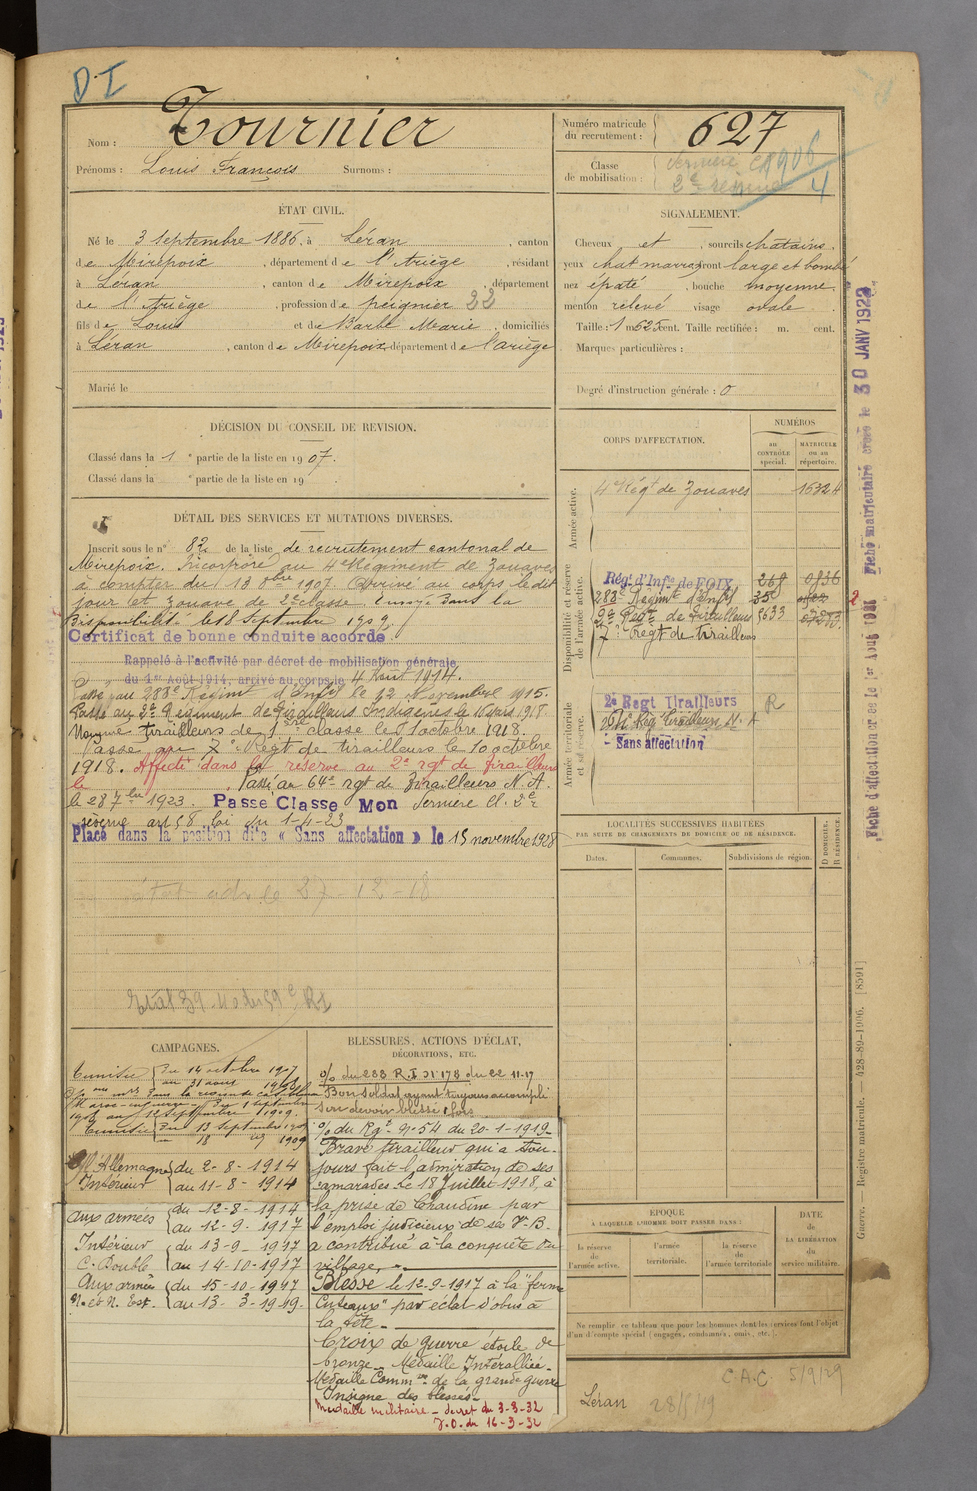 DI
Nom : Tournier
Prénoms : Louis François Surnoms :
Numéro matricule du recrutement : 627
Classe de mobilisation : 1906
dernière Cl
2e réserve
4
ÉTAT CIVIL.
Né le 3 Septembre 1886, à Léran, canton
de Mirepoix, département de l'Ariège, résidant
à Léran, canton de Mirepoix, département
de l'Ariège, profession de peignier 22
fils de Louis et de Barbe Marie, domiciliés
à Léran, canton de Mirepoix, département de l'ariège
Marié le
SIGNALEMENT.
Cheveux et , sourcils chatains.
yeux chat marrons front large et bombé
nez épaté , bouche moyenne
menton relevé visage ovale.
Taille : 1 m 625 cent. Taille rectifiée : m. cent.
Marques particulières :
Degré d'instruction générale : 0
DÉCISION DU CONSEIL DE REVISION.
Classé dans la 1e partie de la liste en 1907.
Classé dans la e partie de la liste en 19 .
DÉTAIL DES SERVICES ET MUTATIONS DIVERSES.
Inscrit sous le n° 82 de la liste de recrutement cantonal de
Mirepoix. Incorporé au 4e Régiment de Zouaves
à compter du 13 8bre 1907. Arrivé au corps le dit
jour et zouave de 2e classe. Envoyé dans la
Disponibilité le 18 Septembre 1909.
Certificat de bonne conduite accordé.
Rappelé à l'activité par décret de mobilisation générale
du 1er Août 1914, arrivé au corps le 4 Août 1914.
Passé au 283e Régimt d'Infie le 12 Novembre 1915.
Passé au 2e Régiment de Tirailleurs Indigènes le 16 Mars 1918.
Nommé tirailleurs de 1ère classe le 1 octobre 1918.
Passé au 7e Régt de tirailleurs le 10 octobre
1918. Affecté dans la réserve au 2e rgt de tirailleurs
le Passé au 64e rgt de Tirailleurs N. A.
le 28 7bre 1923. Passe Classe Mon dernière Cl. 2e
réserve art 58 loi du 1-4-23
Placé dans la position dite « Sans affectation » le 15 novembre 1928
CORPS D'AFFECTATION.
NUMÉROS
au CONTRÔLE spécial.
MATRICULE ou au répertoire.
Armée active.
4e Régt de Zouaves 16324
Disponibilité et réserve de l'armée active.
Régt d'Infie de FOIX
283e Régimt d'Infie
2e Régt de Tirailleurs 5633
7e Régt de tirailleurs
Armée territoriale et sa réserve.
2e Regt Tirailleurs R
- Sans affectation
Fiche matriculaire créée le 30 JANV 1923
Fiche d'affectation créée le 1er Août 1931
LOCALITÉS SUCCESSIVES HABITÉES
PAR SUITE DE CHANGEMENTS DE DOMICILE OU DE RÉSIDENCE.
Dates. Communes. Subdivisions de région.
D DOMICILE. R RÉSIDENCE.
CAMPAGNES.
Tunisie du 14 octobre 1907
au 31 août 1908
Maroc du 1 septembre
1908 au 12 Septembre 1909.
Tunisie du 13 Septembre 1909
au 18 1909
C. Allemagne du 2-8-1914
Intérieur au 11-8-1914
aux armées du 12-8-1914
au 12-9-1917
Intérieur du 13-9-1917
C. Double au 14-10-1917
Aux armées du 15-10-1917
au 13-3-1919.
BLESSURES, ACTIONS D'ÉCLAT,
DÉCORATIONS, ETC.
O/ du 283 R.I. N° 178 du 22 11-17
Bon soldat ayant toujours accompli
son devoir blessé 1 fois
O/ du Rgt n° 54 du 20-1-1919-
Brave tirailleur qui a tou-
jours fait l'admiration de ses
camarades. Le 18 Juillet 1918, à
la prise de Chaudun par
l'emploi judicieux de ses V.B.
a contribué à la conquête du
village.
Blessé le 12-9-1917 à la "ferme
par éclat d'obus à
la tête.
Croix de guerre étoile de
bronze - Médaille Interalliée -
Médaille Commve de la grande guerre
Insigne des blessés -
Médaille militaire - décret du 3-3-32
J.O. du 16-3-32
EPOQUE
À LAQUELLE L'HOMME DOIT PASSER DANS :
la réserve de l'armée active.
l'armée territoriale.
la réserve de l'armée territoriale
DATE de LA LIBÉRATION du service militaire.
Ne remplir ce tableau que pour les hommes dont les services font l'objet
d'un décompte spécial (engagés, condamnés, omis, etc.).
C.A.C. 5/9/29
Léran
Guerre. — Registre matricule. — 428-89-1906. [8591]